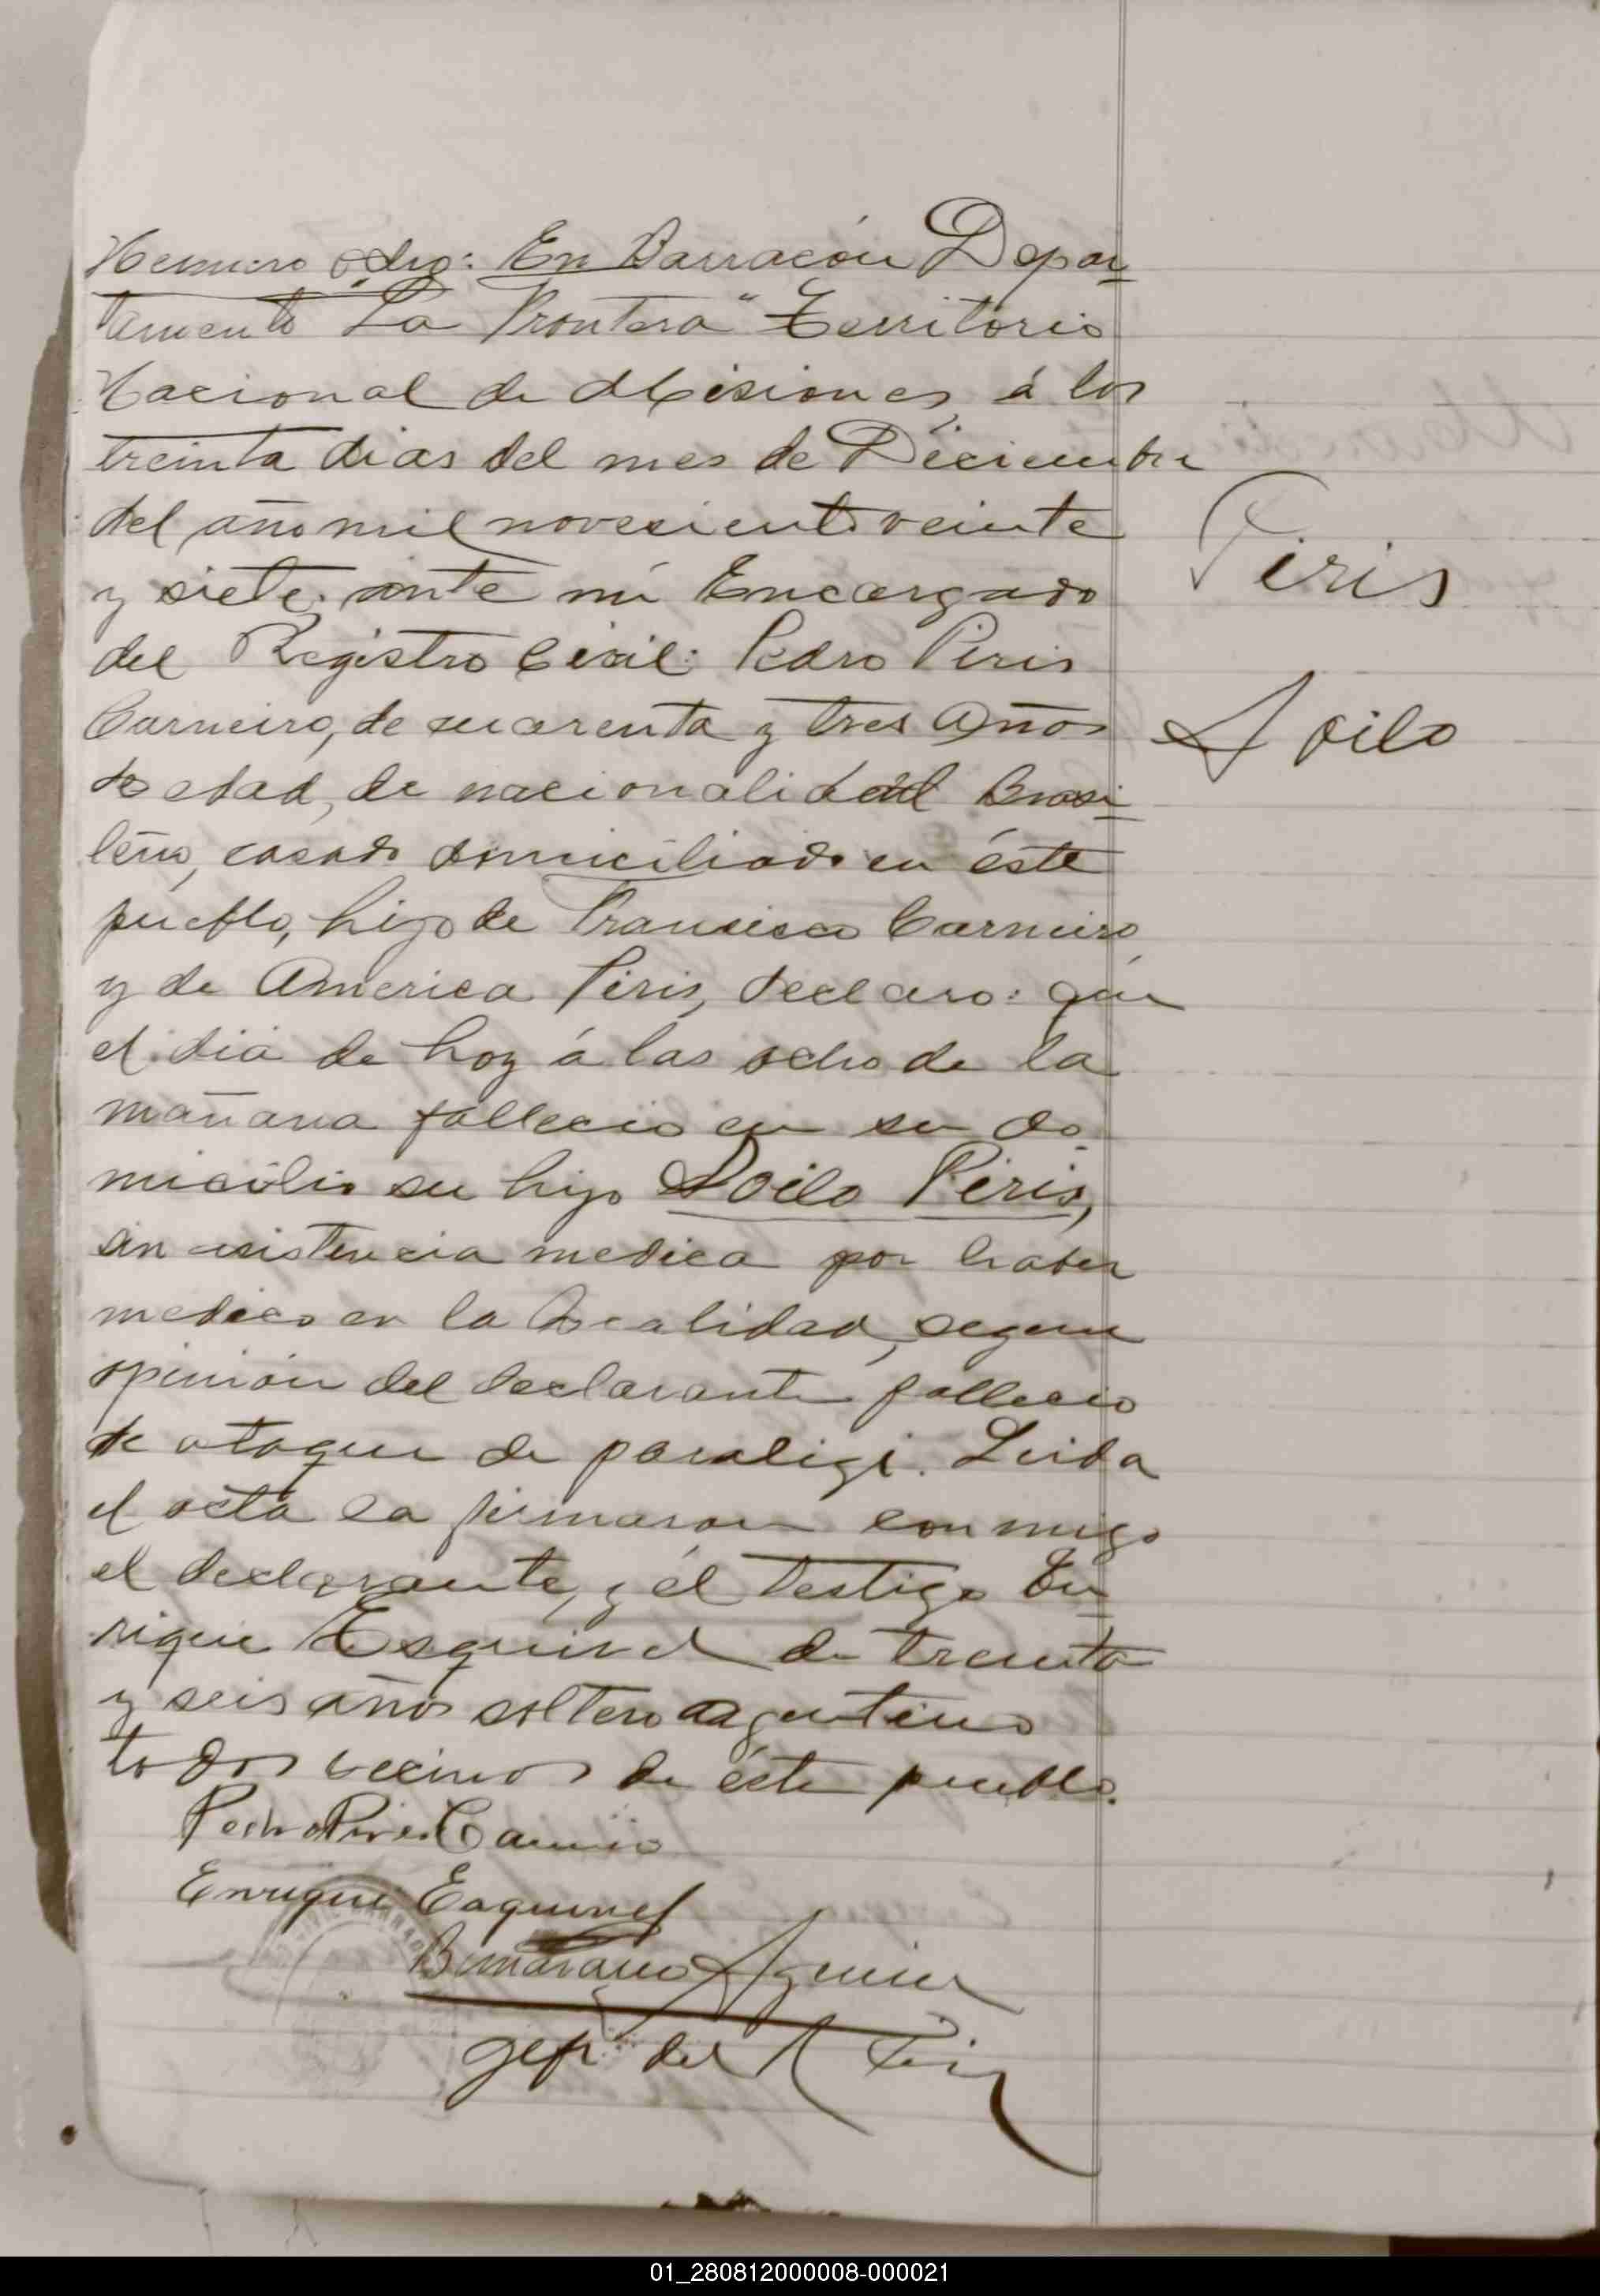 Numero ocho: En Barracón Depar-
tamento "La Frontera" Territorio
Nacional de Misiones, á los
treinta dias del mes de Diciembre
del año mil novecientos veinte
y siete, ante mí Encargado
del Registro Civil: Pedro Piris
Carneiro, de cuarenta y tres años
de edad, de nacionalidad Brasi-
leño, casado domiciliado en éste
pueblo, hijo de Francisco Carneiro
y de America Piris, declaro: que
el dia de hoy á las ocho de la
mañana fallecio en su do-
micilio su hijo Doilo Piris,
sin asistencia medica por haber
medico en la localidad, segun
opinión del declarante fallecio
de ataque de paraligi. Leida
el acta la firmaron conmigo
el declarante, y él testigo En-
rique Esquivel de treinta
y seis años soltero argentino
todos vecinos de éste pueblo.
Piris
Doilo
Pedro Pires Carneiro
Enrique Esquivel
Aguirre
Jefe del R Civil
01_280812000008-000021